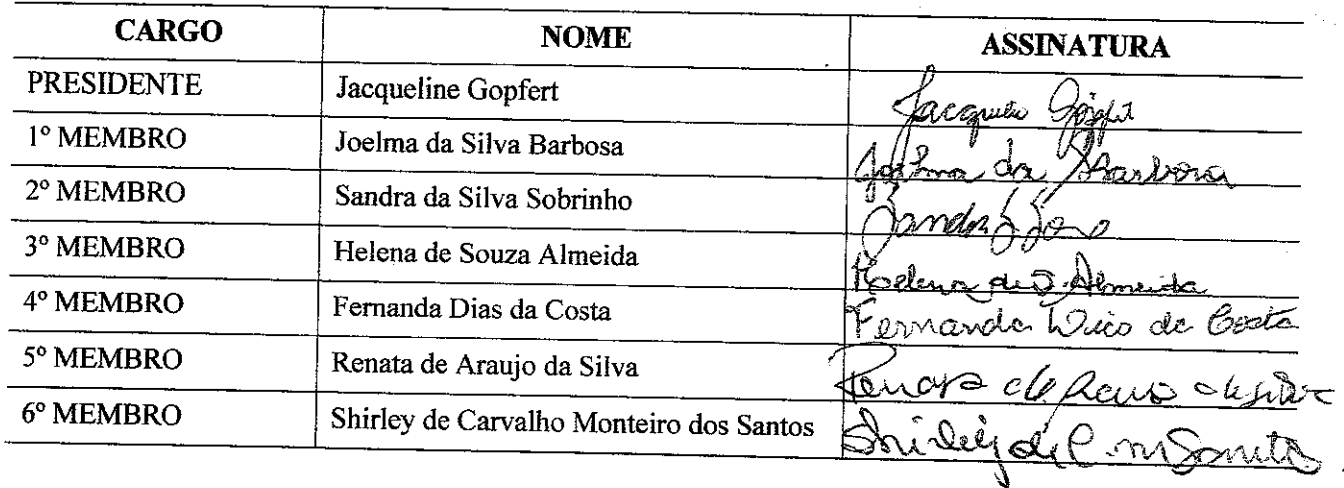 CARGO NOME ASSINATURA
PRESIDENTE Jacqueline Gopfert Jacqueline Gopfert
1º MEMBRO Joelma da Silva Barbosa Joelma da S Barbosa
2º MEMBRO Sandra da Silva Sobrinho Sandra S
3º MEMBRO Helena de Souza Almeida Helena de S. Almeida
4º MEMBRO Fernanda Dias da Costa Fernanda Dias da Costa
5º MEMBRO Renata de Araujo da Silva Renata de da Silva
6º MEMBRO Shirley de Carvalho Monteiro dos Santos Shirley de C. M Santos